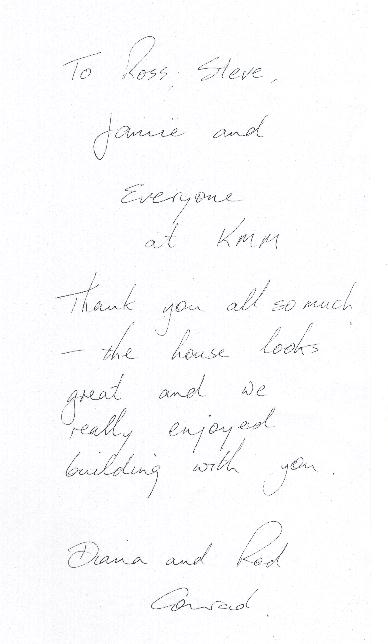 To Ross, Steve,
Jamie and
Everyone
at KMM
Thank you all so much
– the house looks
great and we
really enjoyed
building with you.
Diana and Rod
Conrad.